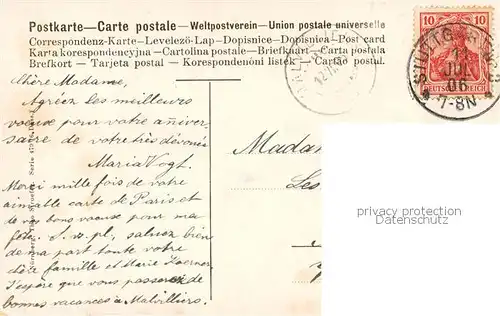 Postkarte—Carte postale — Weltpostverein—Union postale universelle
Correspondenz-Karte—Levelező-Lap—Dopisnice—Dopisnica—Post card
Karta korespondencyjna—Cartolina postale—Briefkaart—Carta postala
Brefkort — Tarjeta postal — Korespondenóni listek — Cartão postal.
10 10
DEUTSCHES REICH
STUTTG
11
JUL
06
7-8N
Chère Madame,
Agréez les meilleurs
voeux pour votre anniver-
saire de votre très dévouée
Maria Vogt.
Merci mille fois de votre
aimable carte de Paris et
de vos bons voeux pour ma
fête. S. v. pl. saluez bien
de ma part toute votre
chère famille et Marie
J'espère que vous passerez de
bonnes vacances à Malvilliers.
Madam
Les
privacy protection
Datenschutz